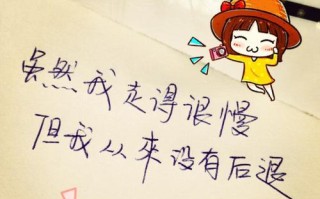 虽然我走得很慢
但我从來没有后退